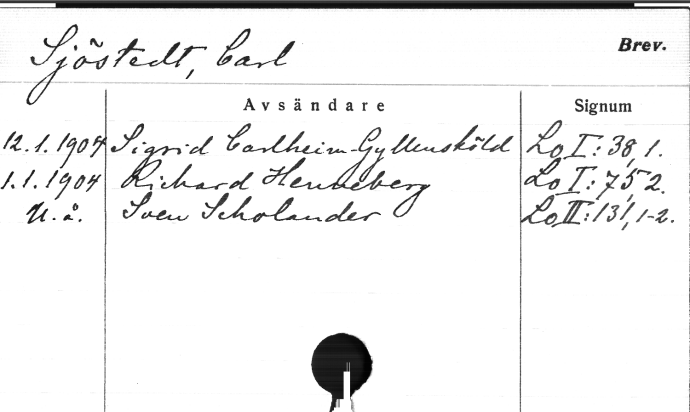 Sjöstedt, Carl Brev.
Avsändare Signum
12.1.1904 Sigrid Carlheim-Gyllensköld Lo I:38,1.
1.1.1904 Richard Henneberg Lo I:75,2.
U.å. Sven Scholander Lo III:131,1-2.